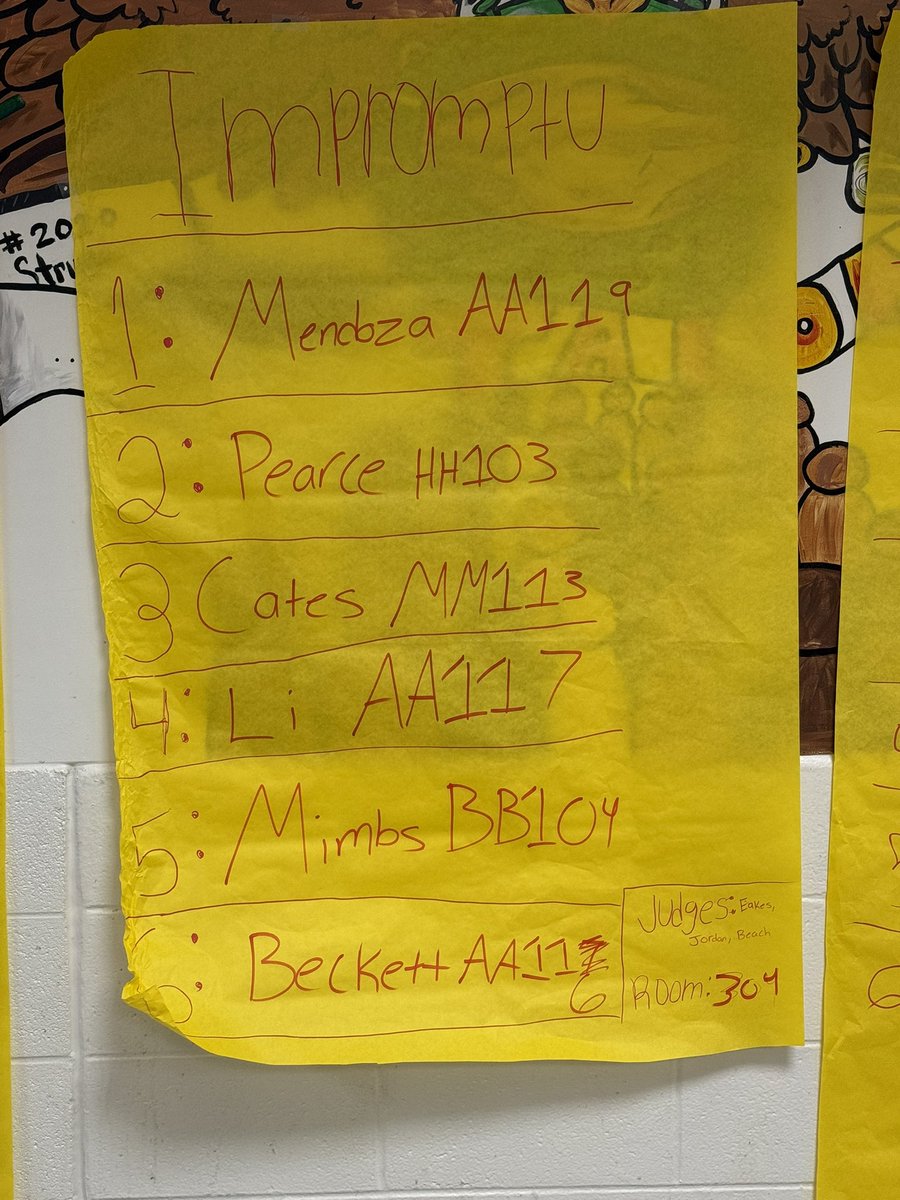 Impromptu
#20
Stru
1: Mendoza AA119
2: Pearce HH103
3 Cates MM113
4: Li AA117
5: Mimbs BB104
6: Beckett AA116
Judges: Eakes,
Jordan, Beach
Room: 304